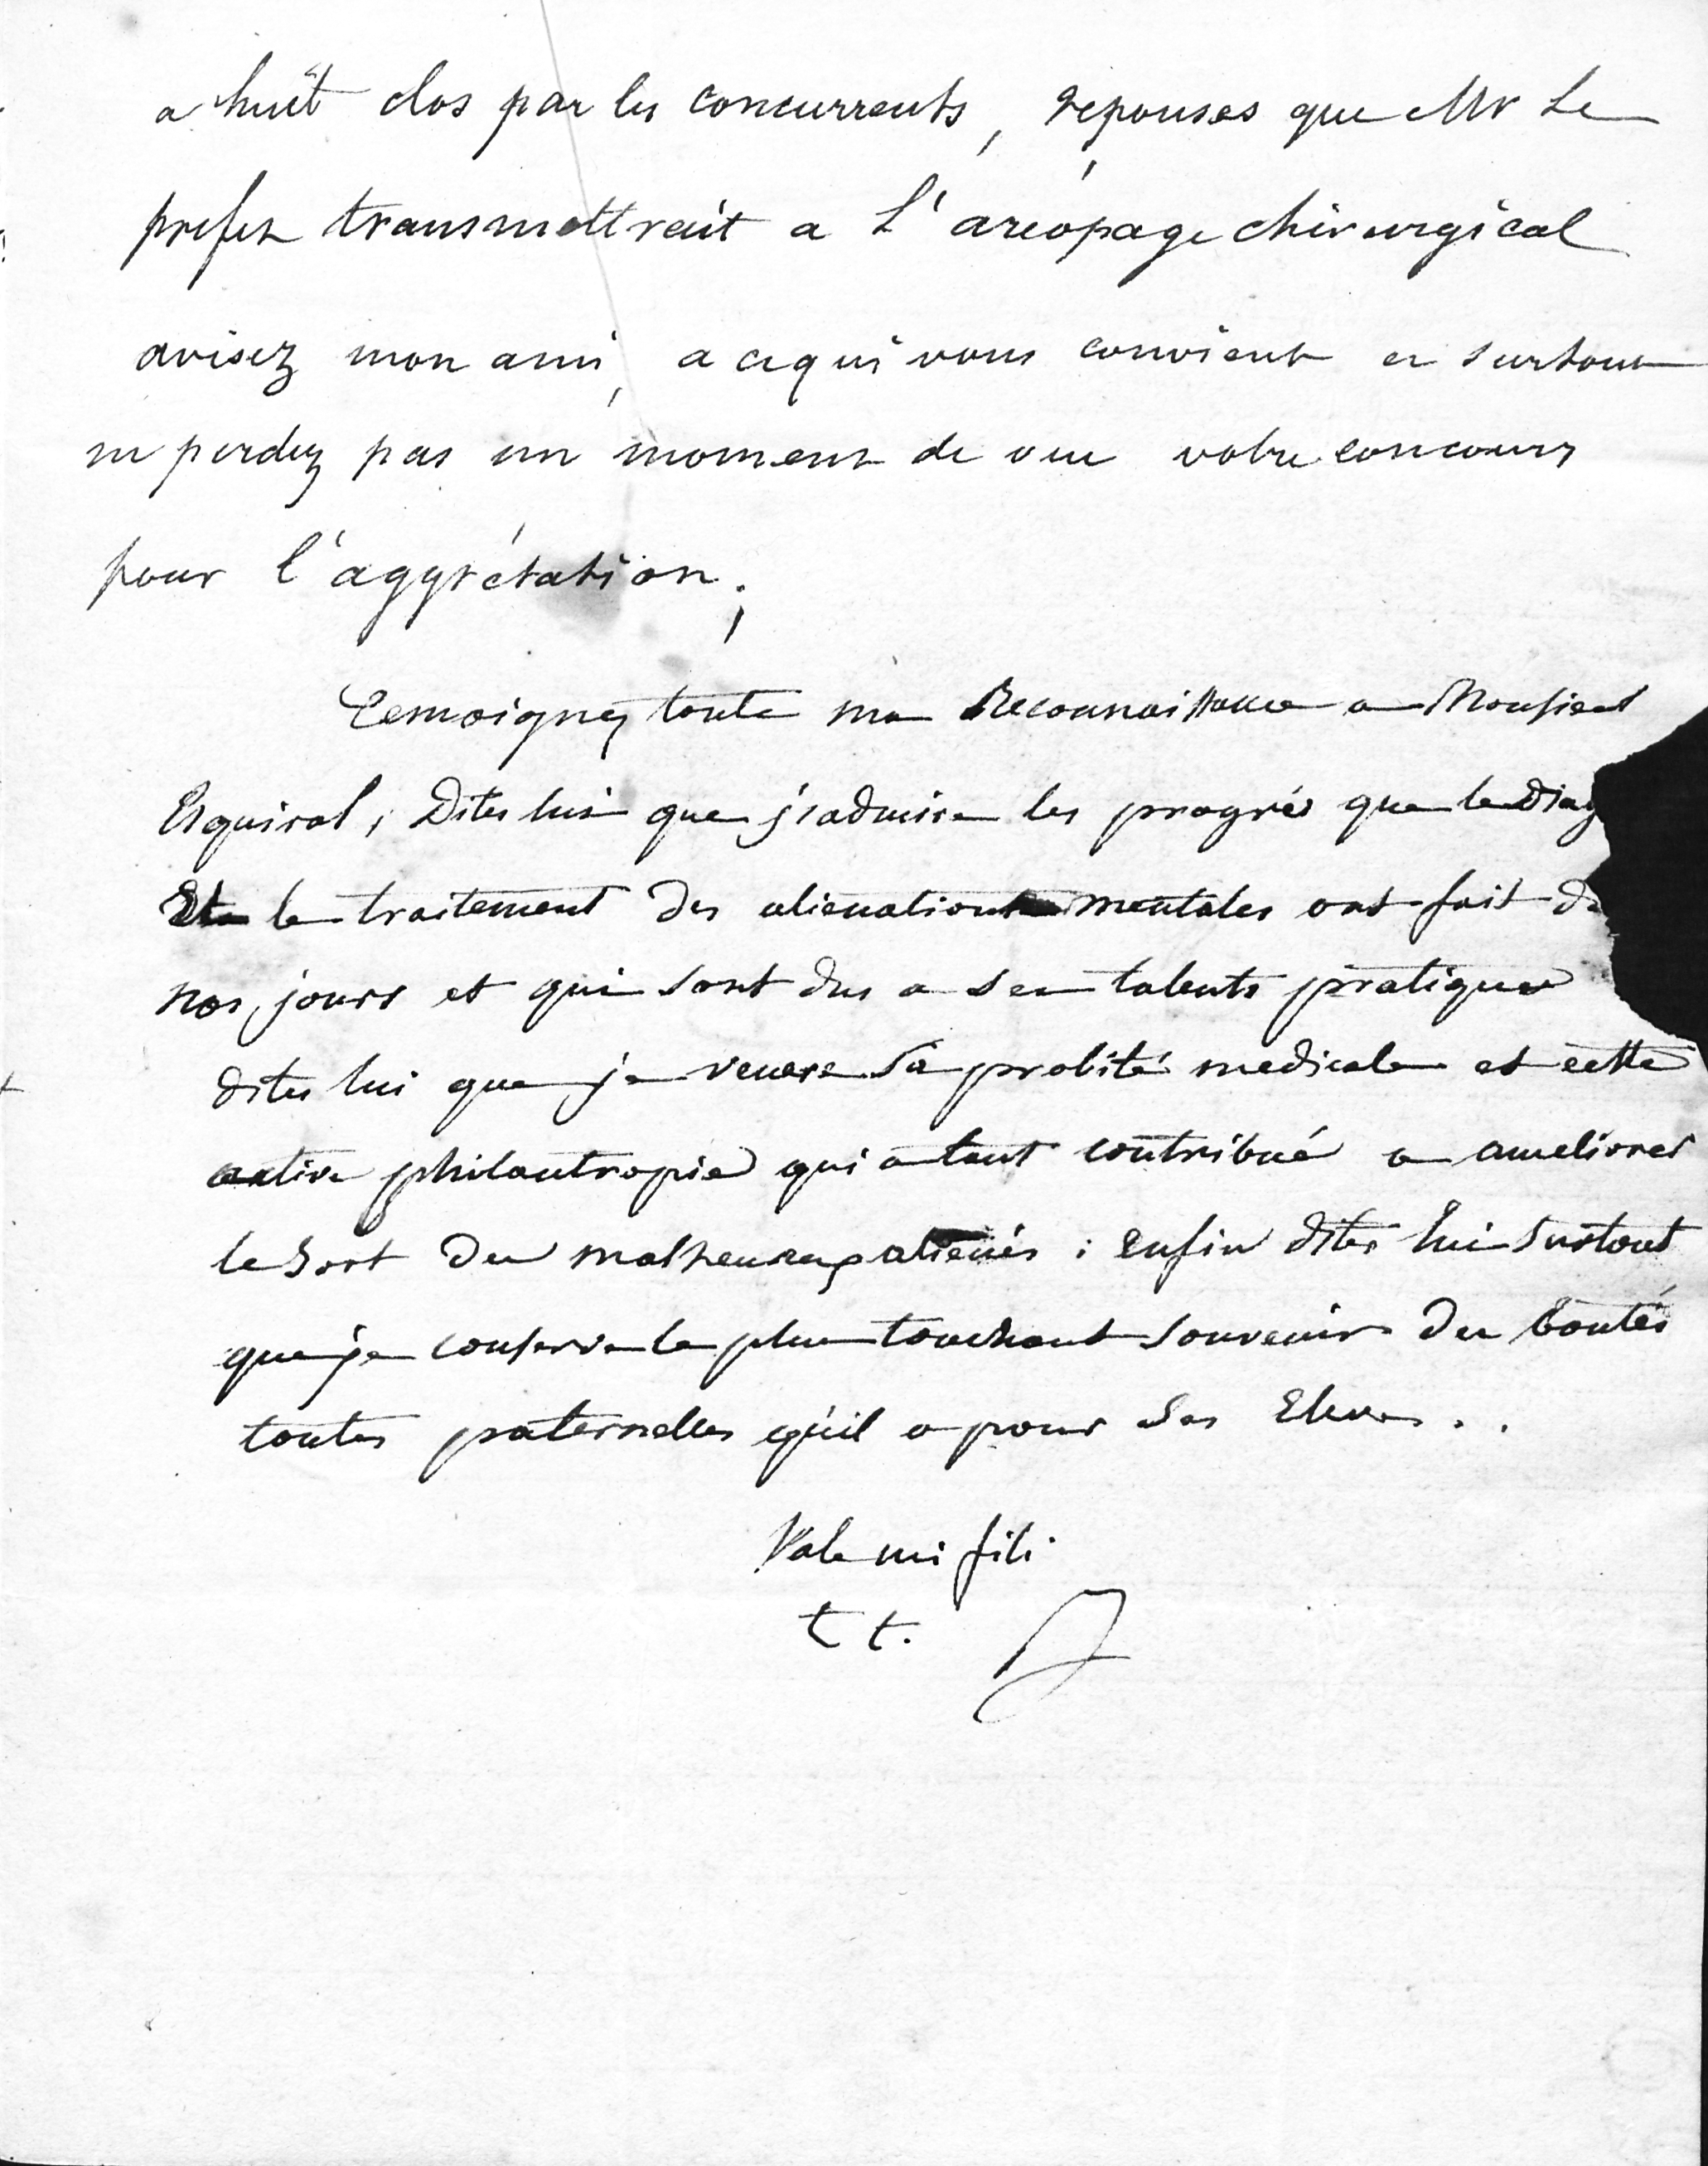 a huit clos par les concurrents, reponses que Mr Le
prefet transmettrait a L'aréopage chirurgical
avisez mon ami, a ce qui vous convient et surtout
ne perdez pas un moment de vue votre concours
pour l'aggrétation;
Temoignez toute ma Reconnaissance a Monsieur
Esquirol, Dites lui que j'admire les progrés que le Diag
Et le traitement des alienations mentales ont fait de
nos jours et qui sont dus a ses talents pratiques
dites lui que je venere sa probité medicale et cette
active philantropie qui a tant contribué a ameliorer
le sort des malheureux aliénés : enfin dites lui surtout
que je conserve le plus touchant souvenir des bontés
toutes paternelles qu'il a pour ses Eleves . .
Vale mi fili
t t.